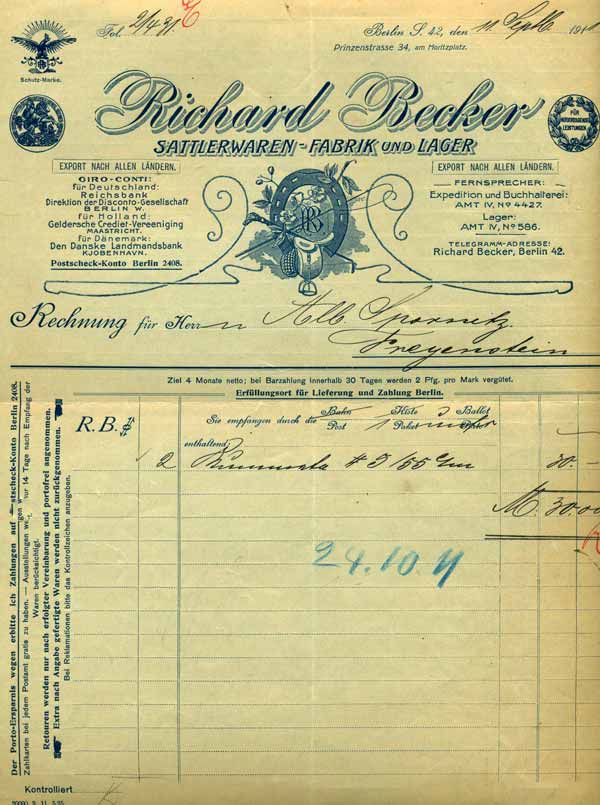 Fol. 2/431
Berlin S. 42, den 11 Septb. 1911
Prinzenstrasse 34, am Moritzplatz.
Schutz-Marke.
Richard Becker
SATTLERWAREN-FABRIK UND LAGER
FÜR HERVORRAGENDE LEISTUNGEN
EXPORT NACH ALLEN LÄNDERN.
GIRO-CONTI:
für Deutschland:
Reichsbank
Direktion der Disconto-Gesellschaft
BERLIN W.
für Holland:
Geldersche Crediet-Vereeniging
MAASTRICHT.
für Dänemark:
Den Danske Landmandsbank
KJOBENHAVN.
Postscheck-Konto Berlin 2408.
RB
EXPORT NACH ALLEN LÄNDERN.
FERNSPRECHER:
Expedition und Buchhalterei:
AMT IV, No 4427.
Lager:
AMT IV, No 586.
TELEGRAMM-ADRESSE:
Richard Becker, Berlin 42.
Rechnung für Herrn Alb. Spornitz.
Freyenstein
Ziel 4 Monate netto; bei Barzahlung innerhalb 30 Tagen werden 2 Pfg. pro Mark vergütet.
Erfüllungsort für Lieferung und Zahlung Berlin.
R.B.
Sie empfangen durch die Bahn Kiste Ballot
Post 1 Paket
enthaltend:
2 # 3/55 c/m 30.-
M. 30.00
24.10.11
Der Porto-Ersparnis wegen erbitte ich Zahlungen auf Postscheck-Konto Berlin 2408.
Zahlkarten bei jedem Postamt gratis zu haben. — Ausstellungen nur 14 Tage nach Empfang der
Waren berücksichtigt.
Retouren werden nur nach erfolgter Vereinbarung und portofrei angenommen.
Extra nach Angabe gefertigte Waren werden nicht zurückgenommen.
Bei Reklamationen bitte das Kontrollzeichen anzugeben.
Kontrolliert